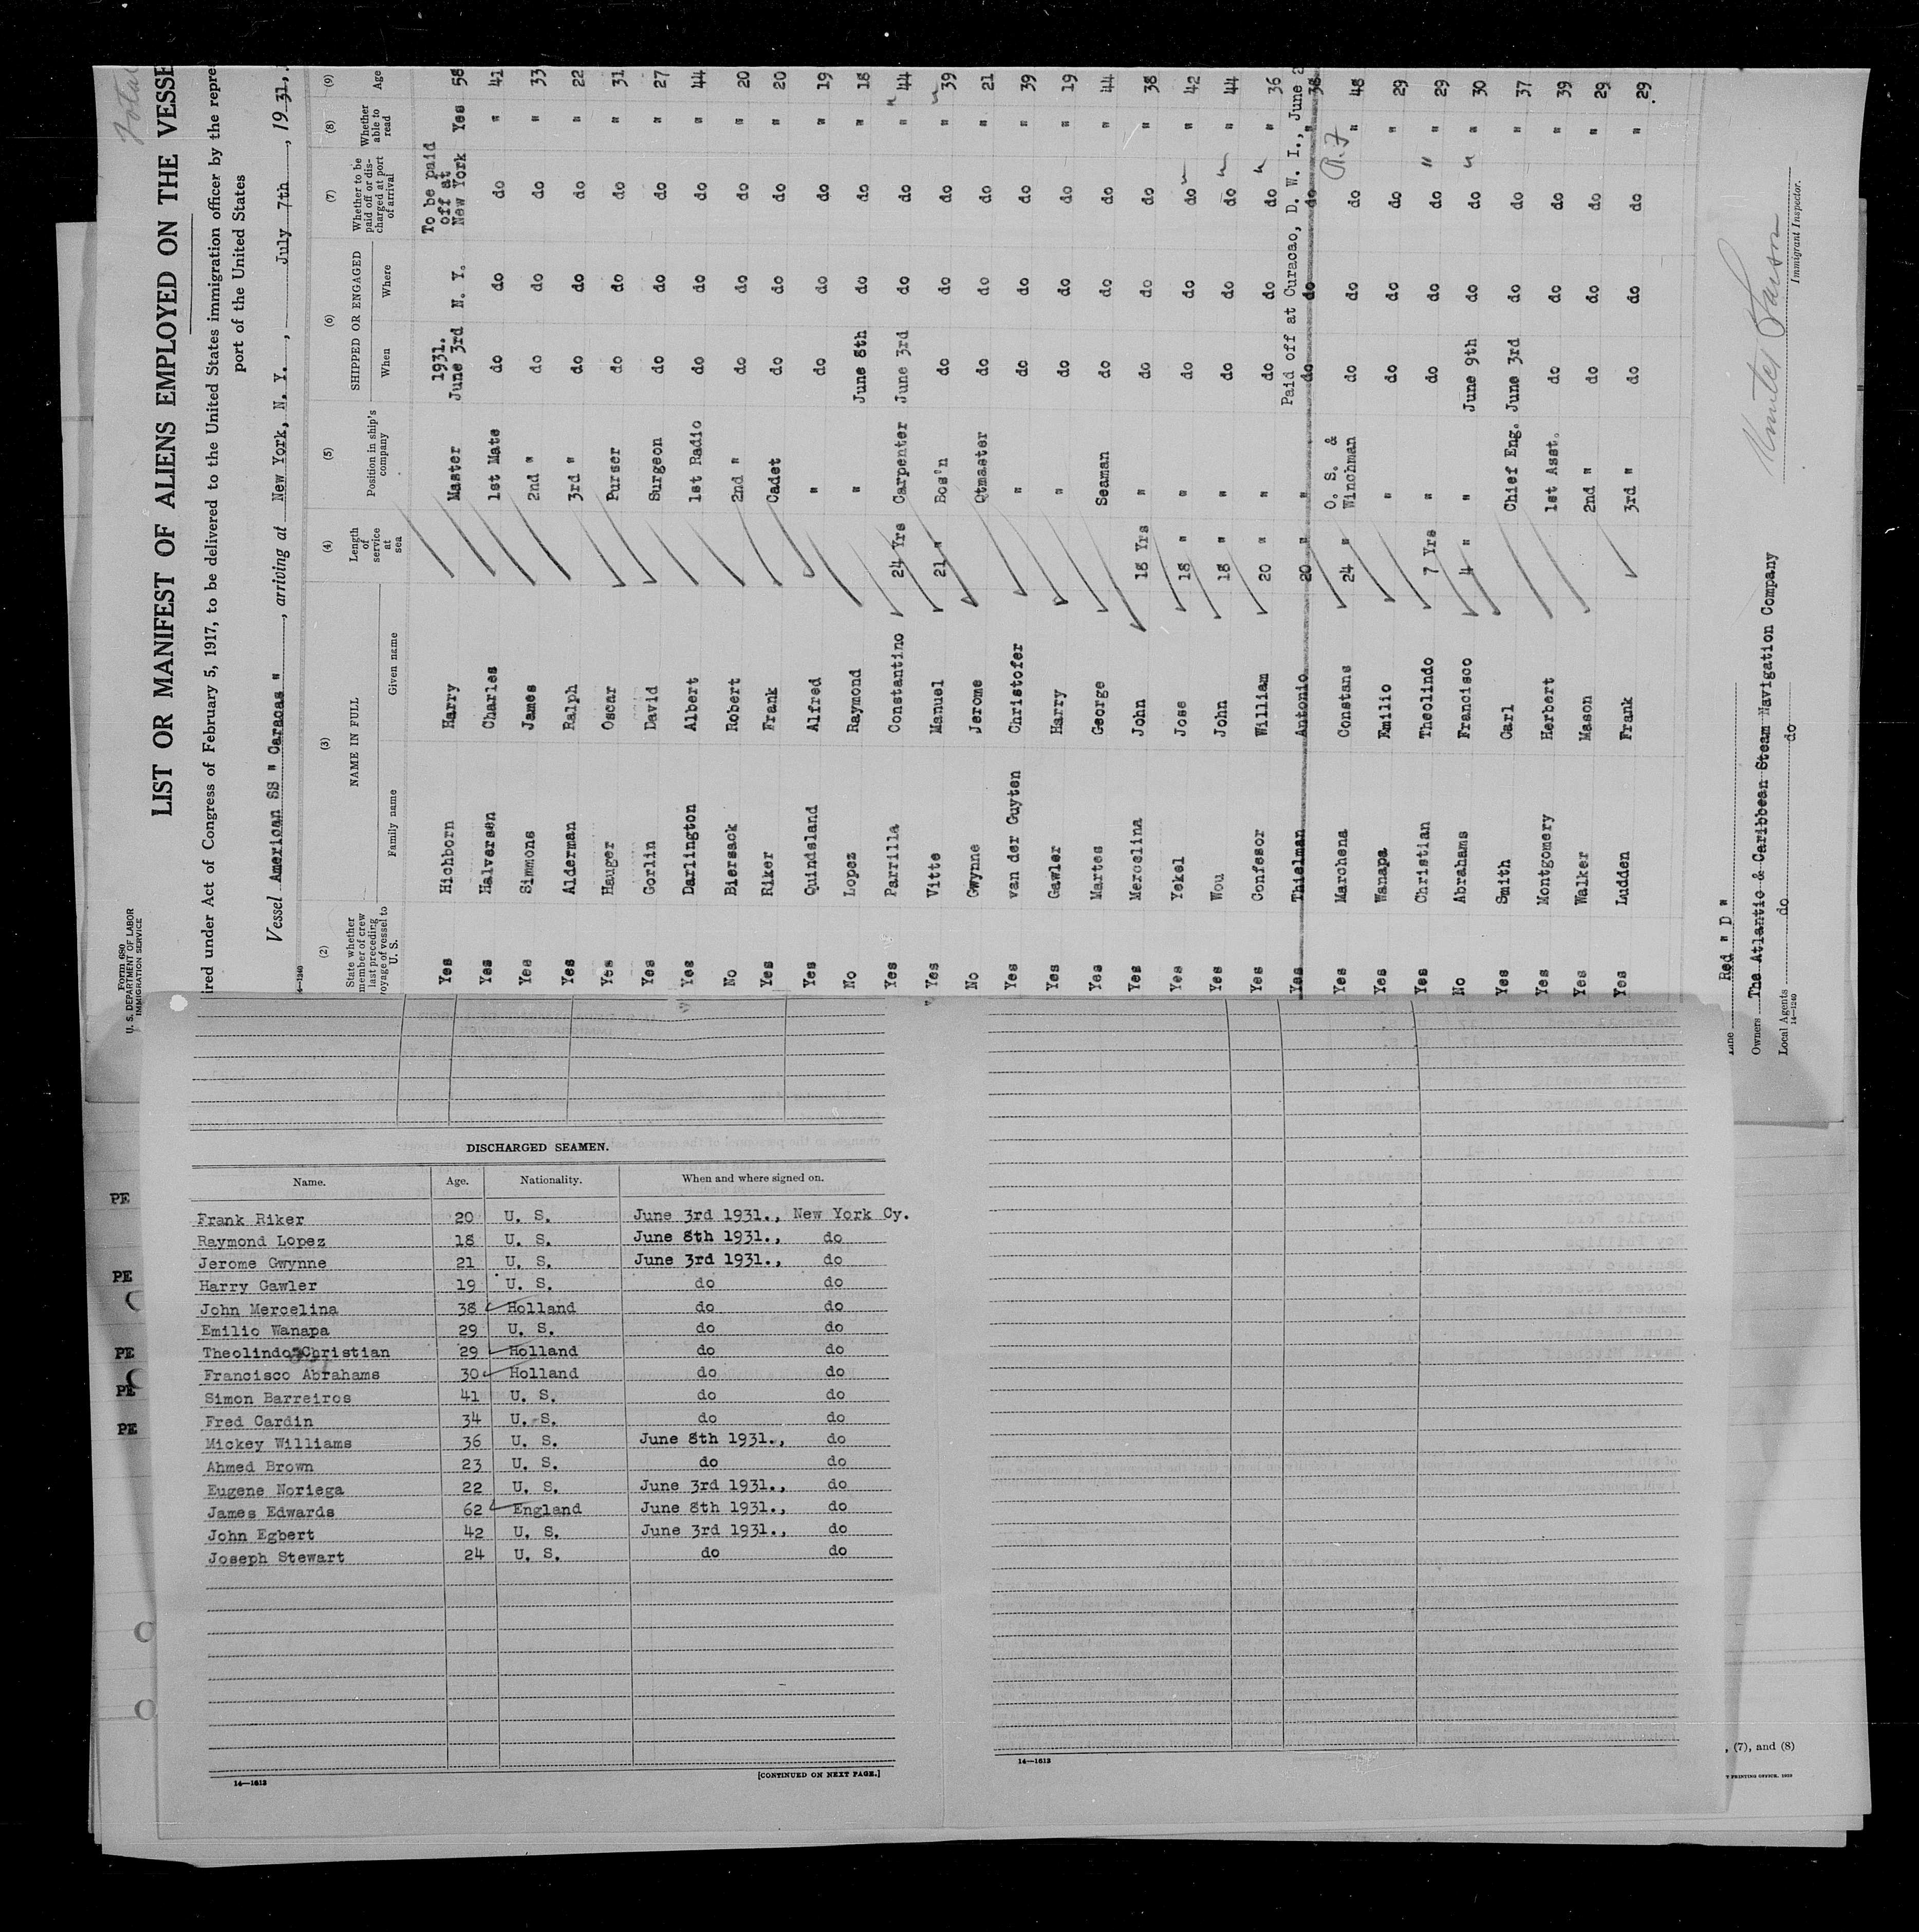 Form 680
U. S. DEPARTMENT OF LABOR
IMMIGRATION SERVICE
LIST OR MANIFEST OF ALIENS EMPLOYED ON THE VESSE
ired under Act of Congress of February 5, 1917, to be delivered to the United States immigration officer by the repre
port of the United States
Vessel American SS " Caracas ", arriving at New York, N. Y., July 7th, 19 31,
14-1240
(2) (3) (4) (5) (6) (7) (8) (9)
State whether member of crew last preceding voyage of vessel to U. S. NAME IN FULL Family name Given name Length of service at sea Position in ship's company SHIPPED OR ENGAGED When Where Whether to be paid off or discharged at port of arrival Whether able to read Age
Yes Hichborn Harry Master 1931. June 3rd N. Y. To be paid off at New York Yes 58
Yes Halversen Charles 1st Mate do do do " 41
Yes Simmons James 2nd " do do do " 33
Yes Alderman Ralph 3rd " do do do " 22
Yes Hauger Oscar Purser do do do " 31
Yes Gorlin David Surgeon do do do " 27
Yes Darlington Albert 1st Radio do do do " 44
No Biersack Robert 2nd " do do do " 20
Yes Riker Frank Cadet do do do " 20
Yes Quindsland Alfred " do do do " 19
No Lopez Raymond " June 8th do do " 18
Yes Parrilla Constantino 24 Yrs Carpenter June 3rd do do " 44
Yes Vitte Manuel 21 " Bos'n do do do " 39
No Gwynne Jerome Qtmaster do do do " 21
Yes van der Guyten Christofer " do do do " 39
Yes Gawler Harry " do do do " 19
Yes Martes George Seaman do do do " 44
Yes Mercelina John 18 Yrs " do do do " 38
Yes Yekel Jose 18 " " do do do " 42
Yes Wou John 18 " " do do do " 44
Yes Confesor William 20 " " do do do " 36
Paid off at Curacao, D. W. I., June 2
Yes Thielman Antonio 20 " " do do do " 38
Yes Marchena Constans 24 " O. S. & Winchman do do do " 48
Yes Wanapa Emilio " do do do " 29
Yes Christian Theolindo 7 Yrs " do do do " 29
No Abrahams Francisco 4 " " June 9th do do " 30
Yes Smith Carl Chief Eng. June 3rd do do " 37
Yes Montgomery Herbert 1st Asst. do do do " 39
Yes Walker Mason 2nd " do do do " 29
Yes Ludden Frank 3rd " do do do " 29
Red " D "
Owners The Atlantic & Caribbean Steam Navigation Company
Local Agents do do
14-1240
Immigrant Inspector.
DISCHARGED SEAMEN.
Name. Age. Nationality. When and where signed on.
Frank Riker 20 U. S. June 3rd 1931., New York Cy.
Raymond Lopez 18 U. S. June 8th 1931., do
Jerome Gwynne 21 U. S. June 3rd 1931., do
Harry Gawler 19 U. S. do do
John Mercelina 38 Holland do do
Emilio Wanapa 29 U. S. do do
Theolindo Christian 29 Holland do do
Francisco Abrahams 30 Holland do do
Simon Barreiros 41 U. S. do do
Fred Cardin 34 U. S. do do
Mickey Williams 36 U. S. June 8th 1931., do
Ahmed Brown 23 U. S. do do
Eugene Noriega 22 U. S. June 3rd 1931., do
James Edwards 62 England June 8th 1931., do
John Egbert 42 U. S. June 3rd 1931., do
Joseph Stewart 24 U. S. do do
14—1613
[CONTINUED ON NEXT PAGE.]
14—1613
PE
PE
PE
PE
PE
, (7), and (8)